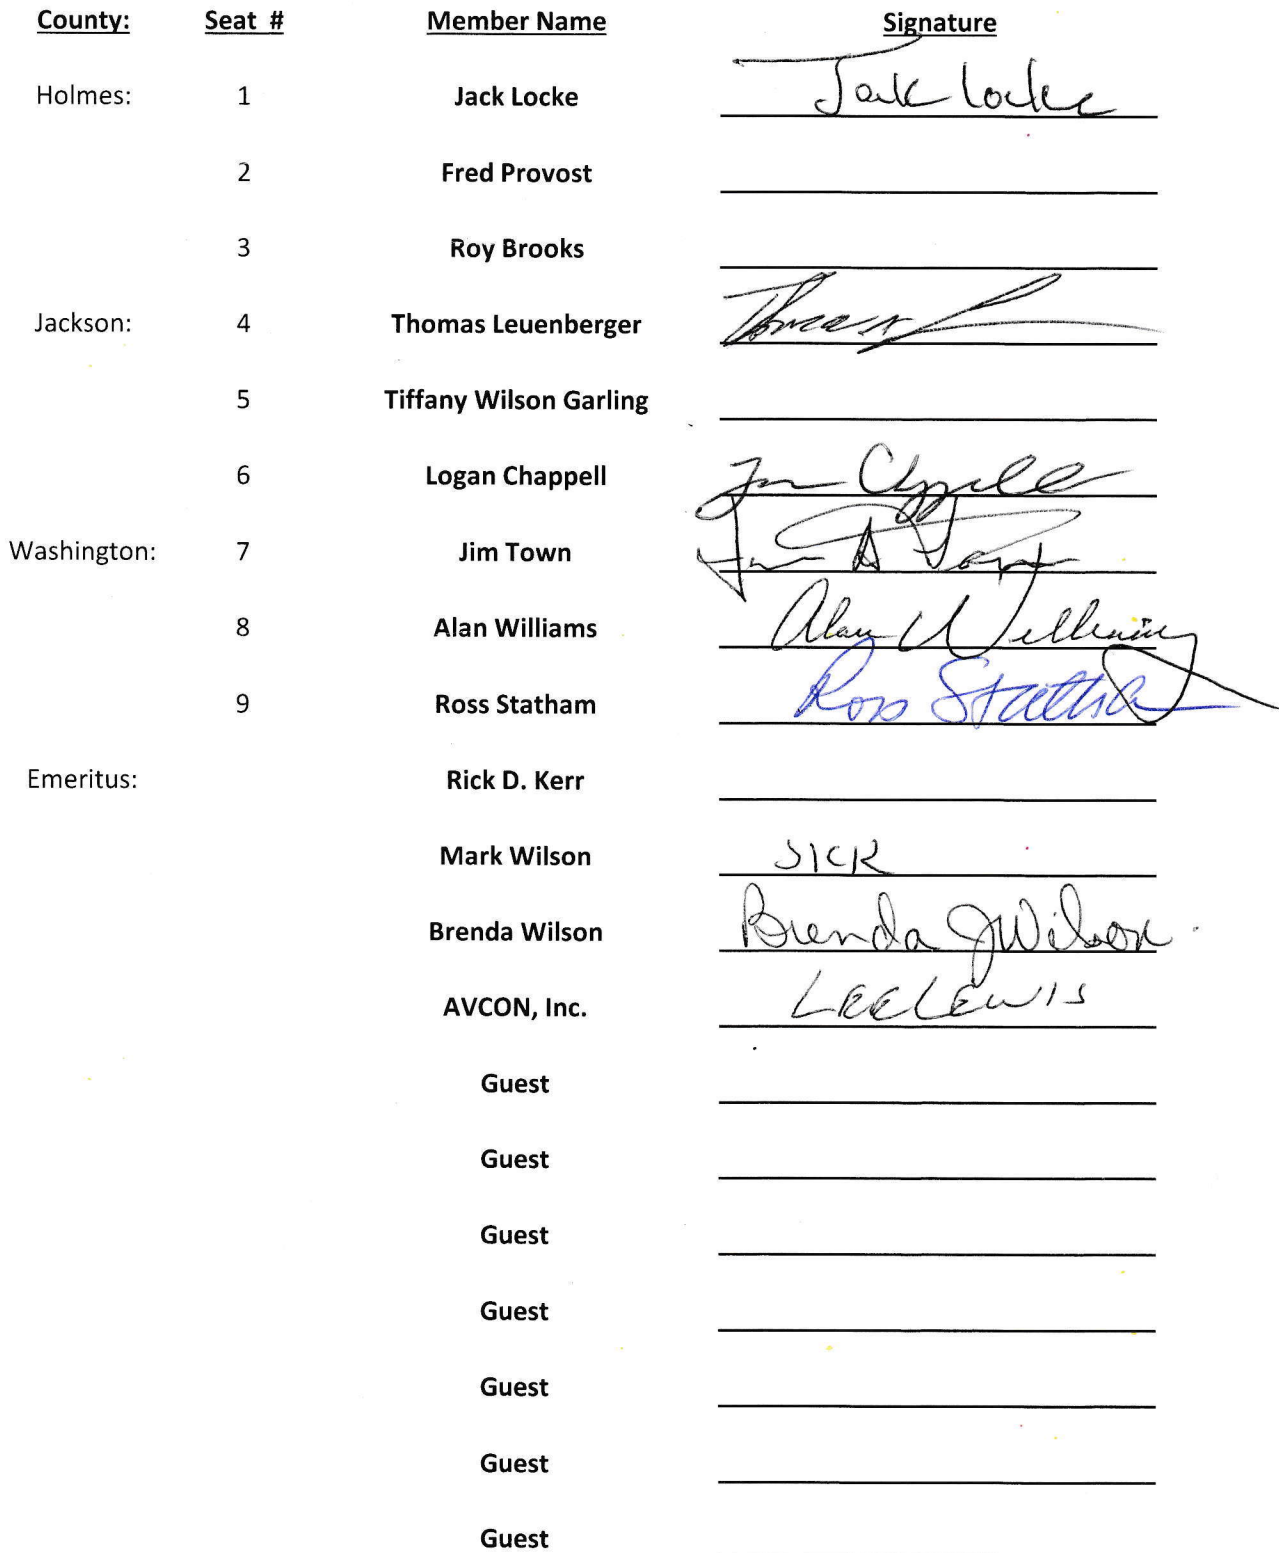 County: Seat # Member Name Signature
Holmes: 1 Jack Locke Jack Locke
2 Fred Provost
3 Roy Brooks
Jackson: 4 Thomas Leuenberger Thomas
5 Tiffany Wilson Garling
6 Logan Chappell Chappell
Washington: 7 Jim Town Jim A Town
8 Alan Williams Alan Williams
9 Ross Statham Ross Statham
Emeritus: Rick D. Kerr
Mark Wilson SICK
Brenda Wilson Brenda J Wilson
AVCON, Inc. LEE LEWIS
Guest
Guest
Guest
Guest
Guest
Guest
Guest